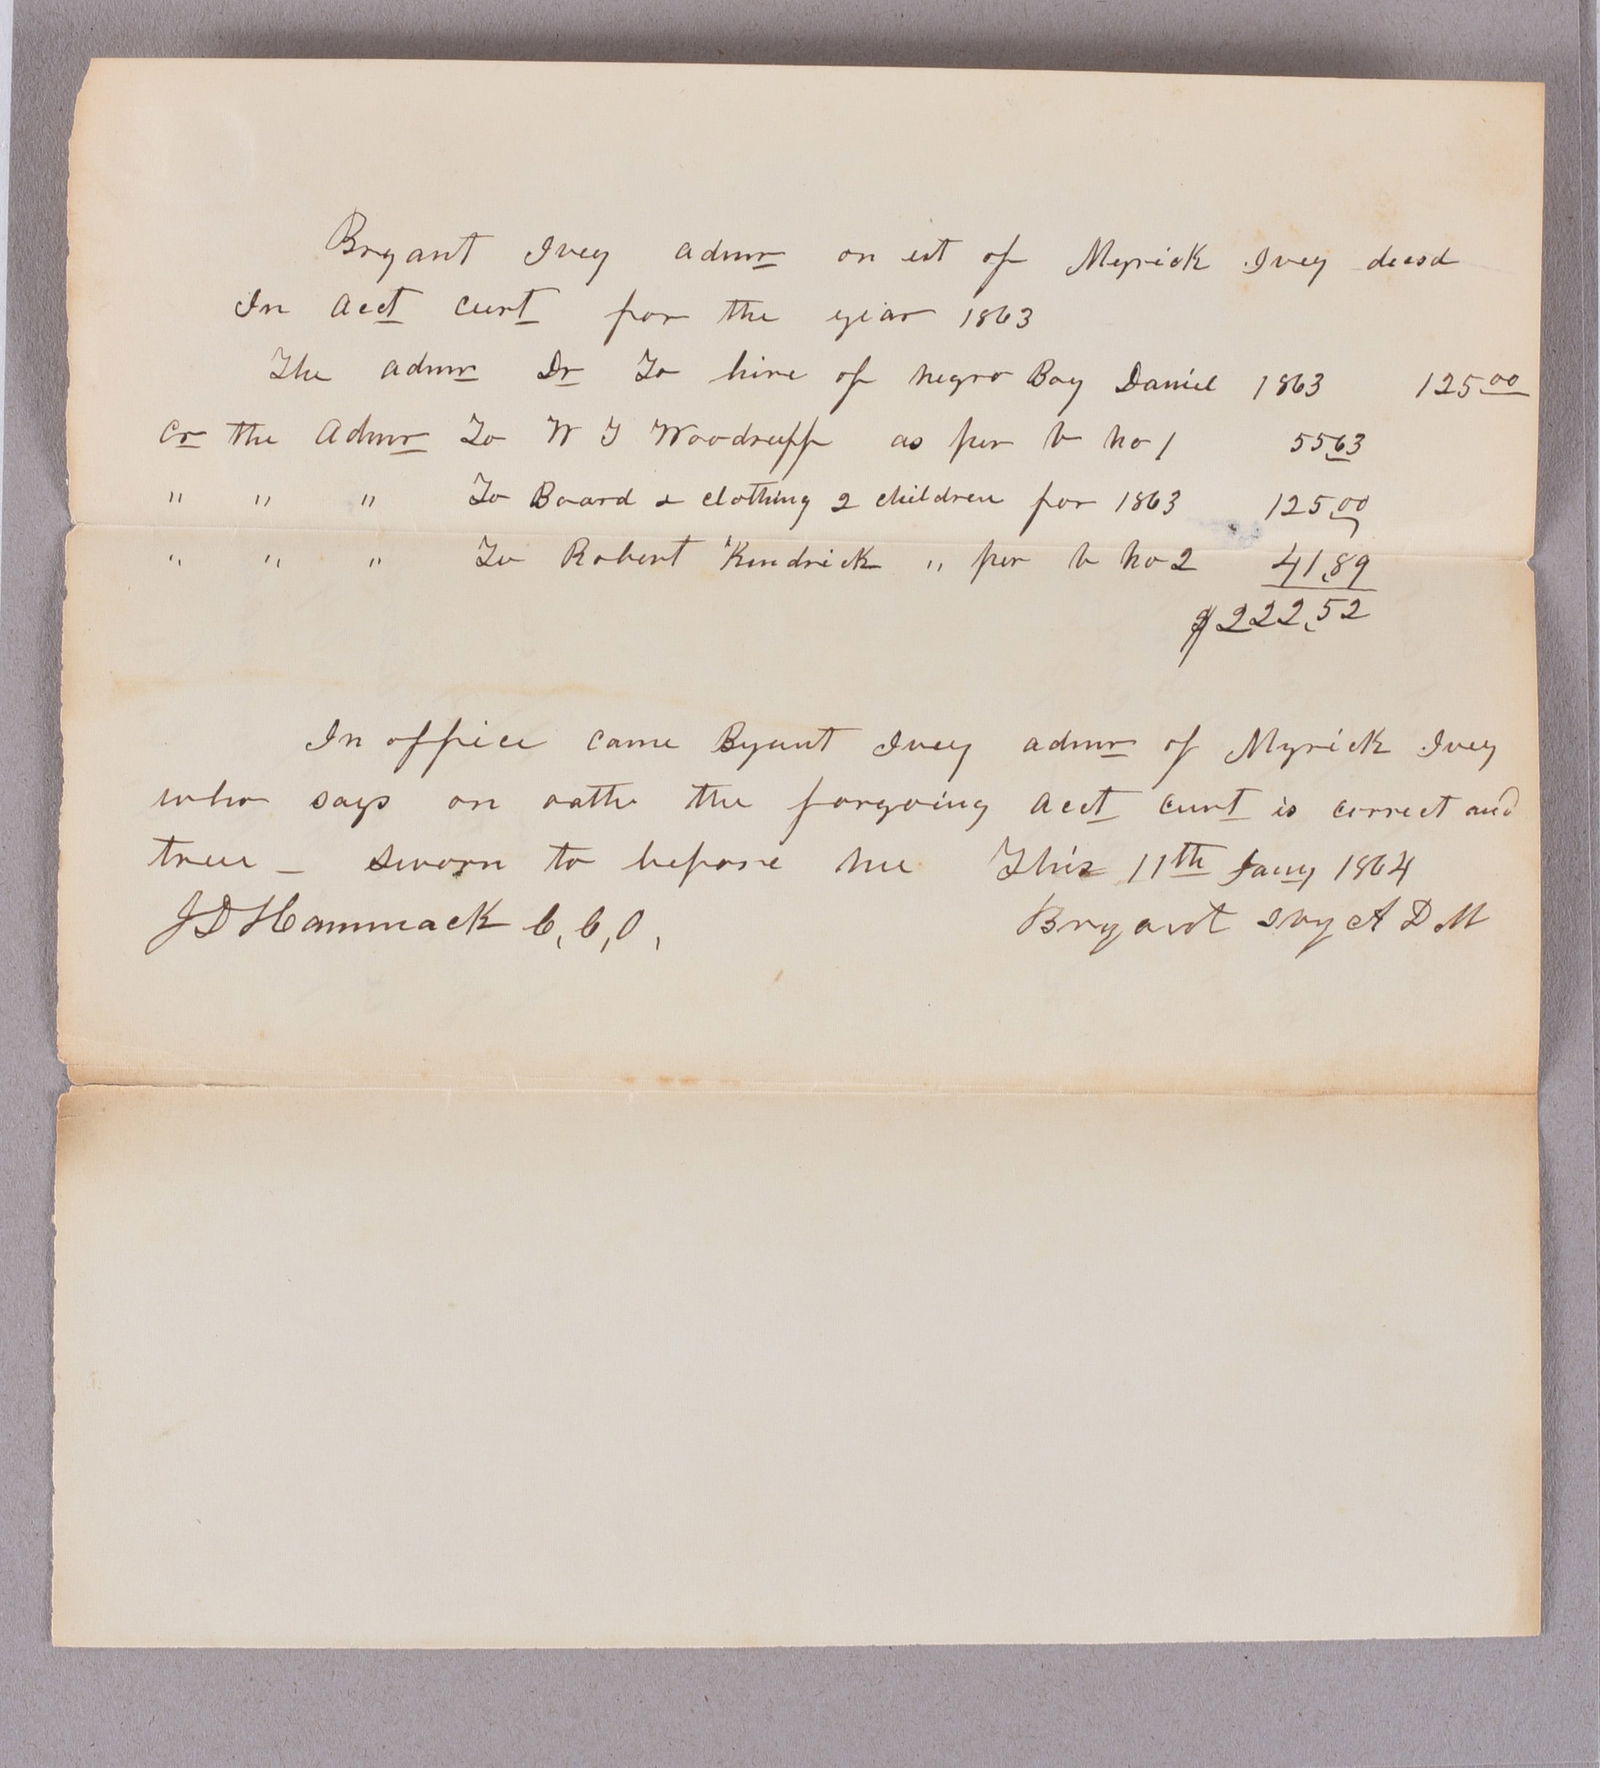 Bryant Ivey admr on est of Myrick Ivey decsd
In acct curt for the year 1863
The admr Dr To hire of negro Boy Daniel 1863 125 00
Cr the Admr To W T Woodruff as per v no 1 55 63
" " " To Board & clothing 2 children for 1863 125,00
" " " To Robert Kendrick " per v no 2 41,89
$222,52
In office came Byant Ivey admr of Myrick Ivey
who says on oath the forgoing acct curt is correct and
true _ sworn to before me This 11th Jany 1864
J D Hammack C, C, O, Bryant Ivy A D M